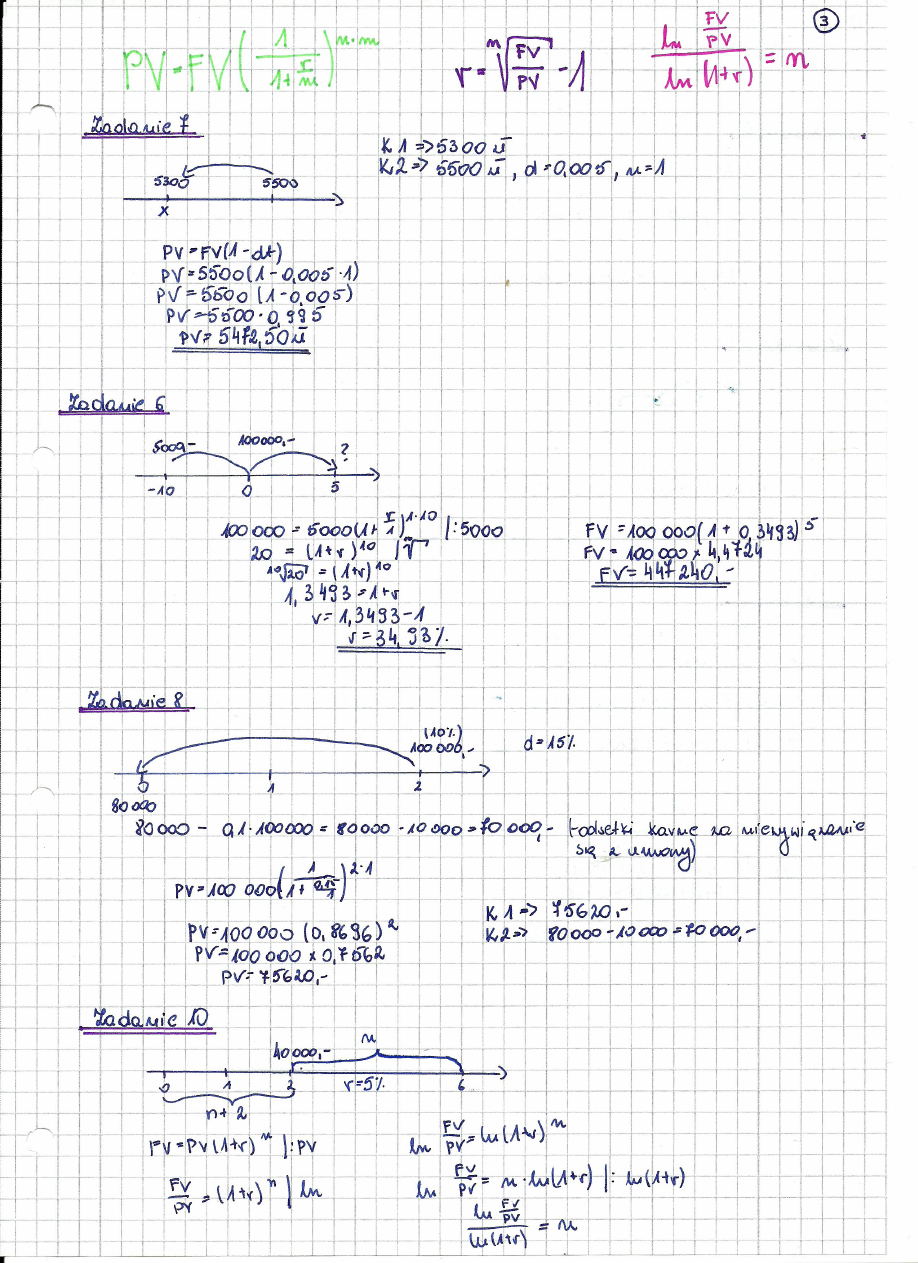 3
PV = FV (1 / 1 + r/m)^n·m
r = ⁿ√(FV/PV) - 1
ln FV/PV / ln (1+r) = n
Zadanie 7
K1 => 5300 zł
K2 => 5500 zł, d = 0,005, n = 1
5300 5500
x
PV = FV (1 - dt)
PV = 5500 (1 - 0,005 · 1)
PV = 5500 (1 - 0,005)
PV = 5500 · 0,995
PV = 5472,50 zł
Zadanie 6
5000,- 100000,- ?
-10 0 5
100 000 = 5000 (1 + r/1)^1·10 |: 5000
20 = (1+r)^10 |√
¹⁰√20 = (1+r)^10
1,3493 = 1+r
r = 1,3493 - 1
r = 34,93%
FV = 100 000 (1 + 0,3493)^5
FV = 100 000 x 4,4724
FV = 447 240,-
Zadanie 8
(10%)
100 000,-
d = 15%
0 1 2
80 000
80 000 - 0,1 · 100 000 = 80 000 - 10 000 = 70 000,- (odsetki karne za niewywiązanie
się z umowy)
PV = 100 000 (1 / 1 + 0,15/1)^2·1
PV = 100 000 (0,8696)^2
PV = 100 000 x 0,7562
PV = 75620,-
K1 => 75620,-
K2 => 80 000 - 10 000 = 70 000,-
Zadanie 10
40 000,- n
0 1 2 r = 5% 6
n + 2
FV = PV (1+r)^n |: PV
FV/PV = (1+r)^n | ln
ln FV/PV = ln (1+r)^n
ln FV/PV = n · ln (1+r) |: ln (1+r)
ln FV/PV / ln (1+r) = n